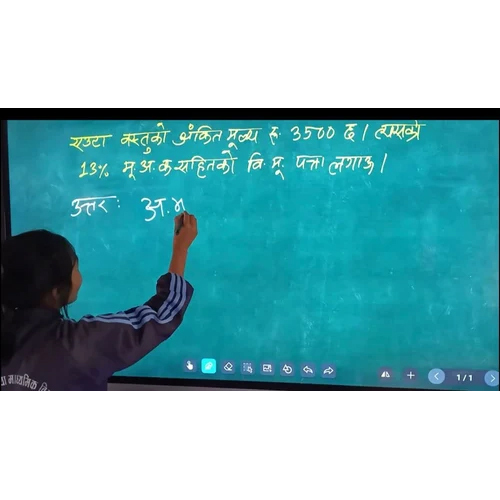 एउटा वस्तुको अंकित मूल्य रु. 3500 छ। त्यसको
13% मू.अ.क सहितको वि.मू. पत्ता लगाऊ।
उत्तर: अ.म
माध्यमिक
1/1